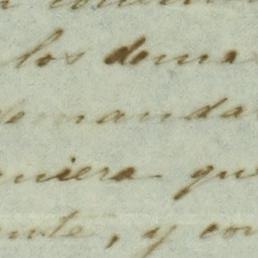 los dema
demanda
quiera que
ente, y con